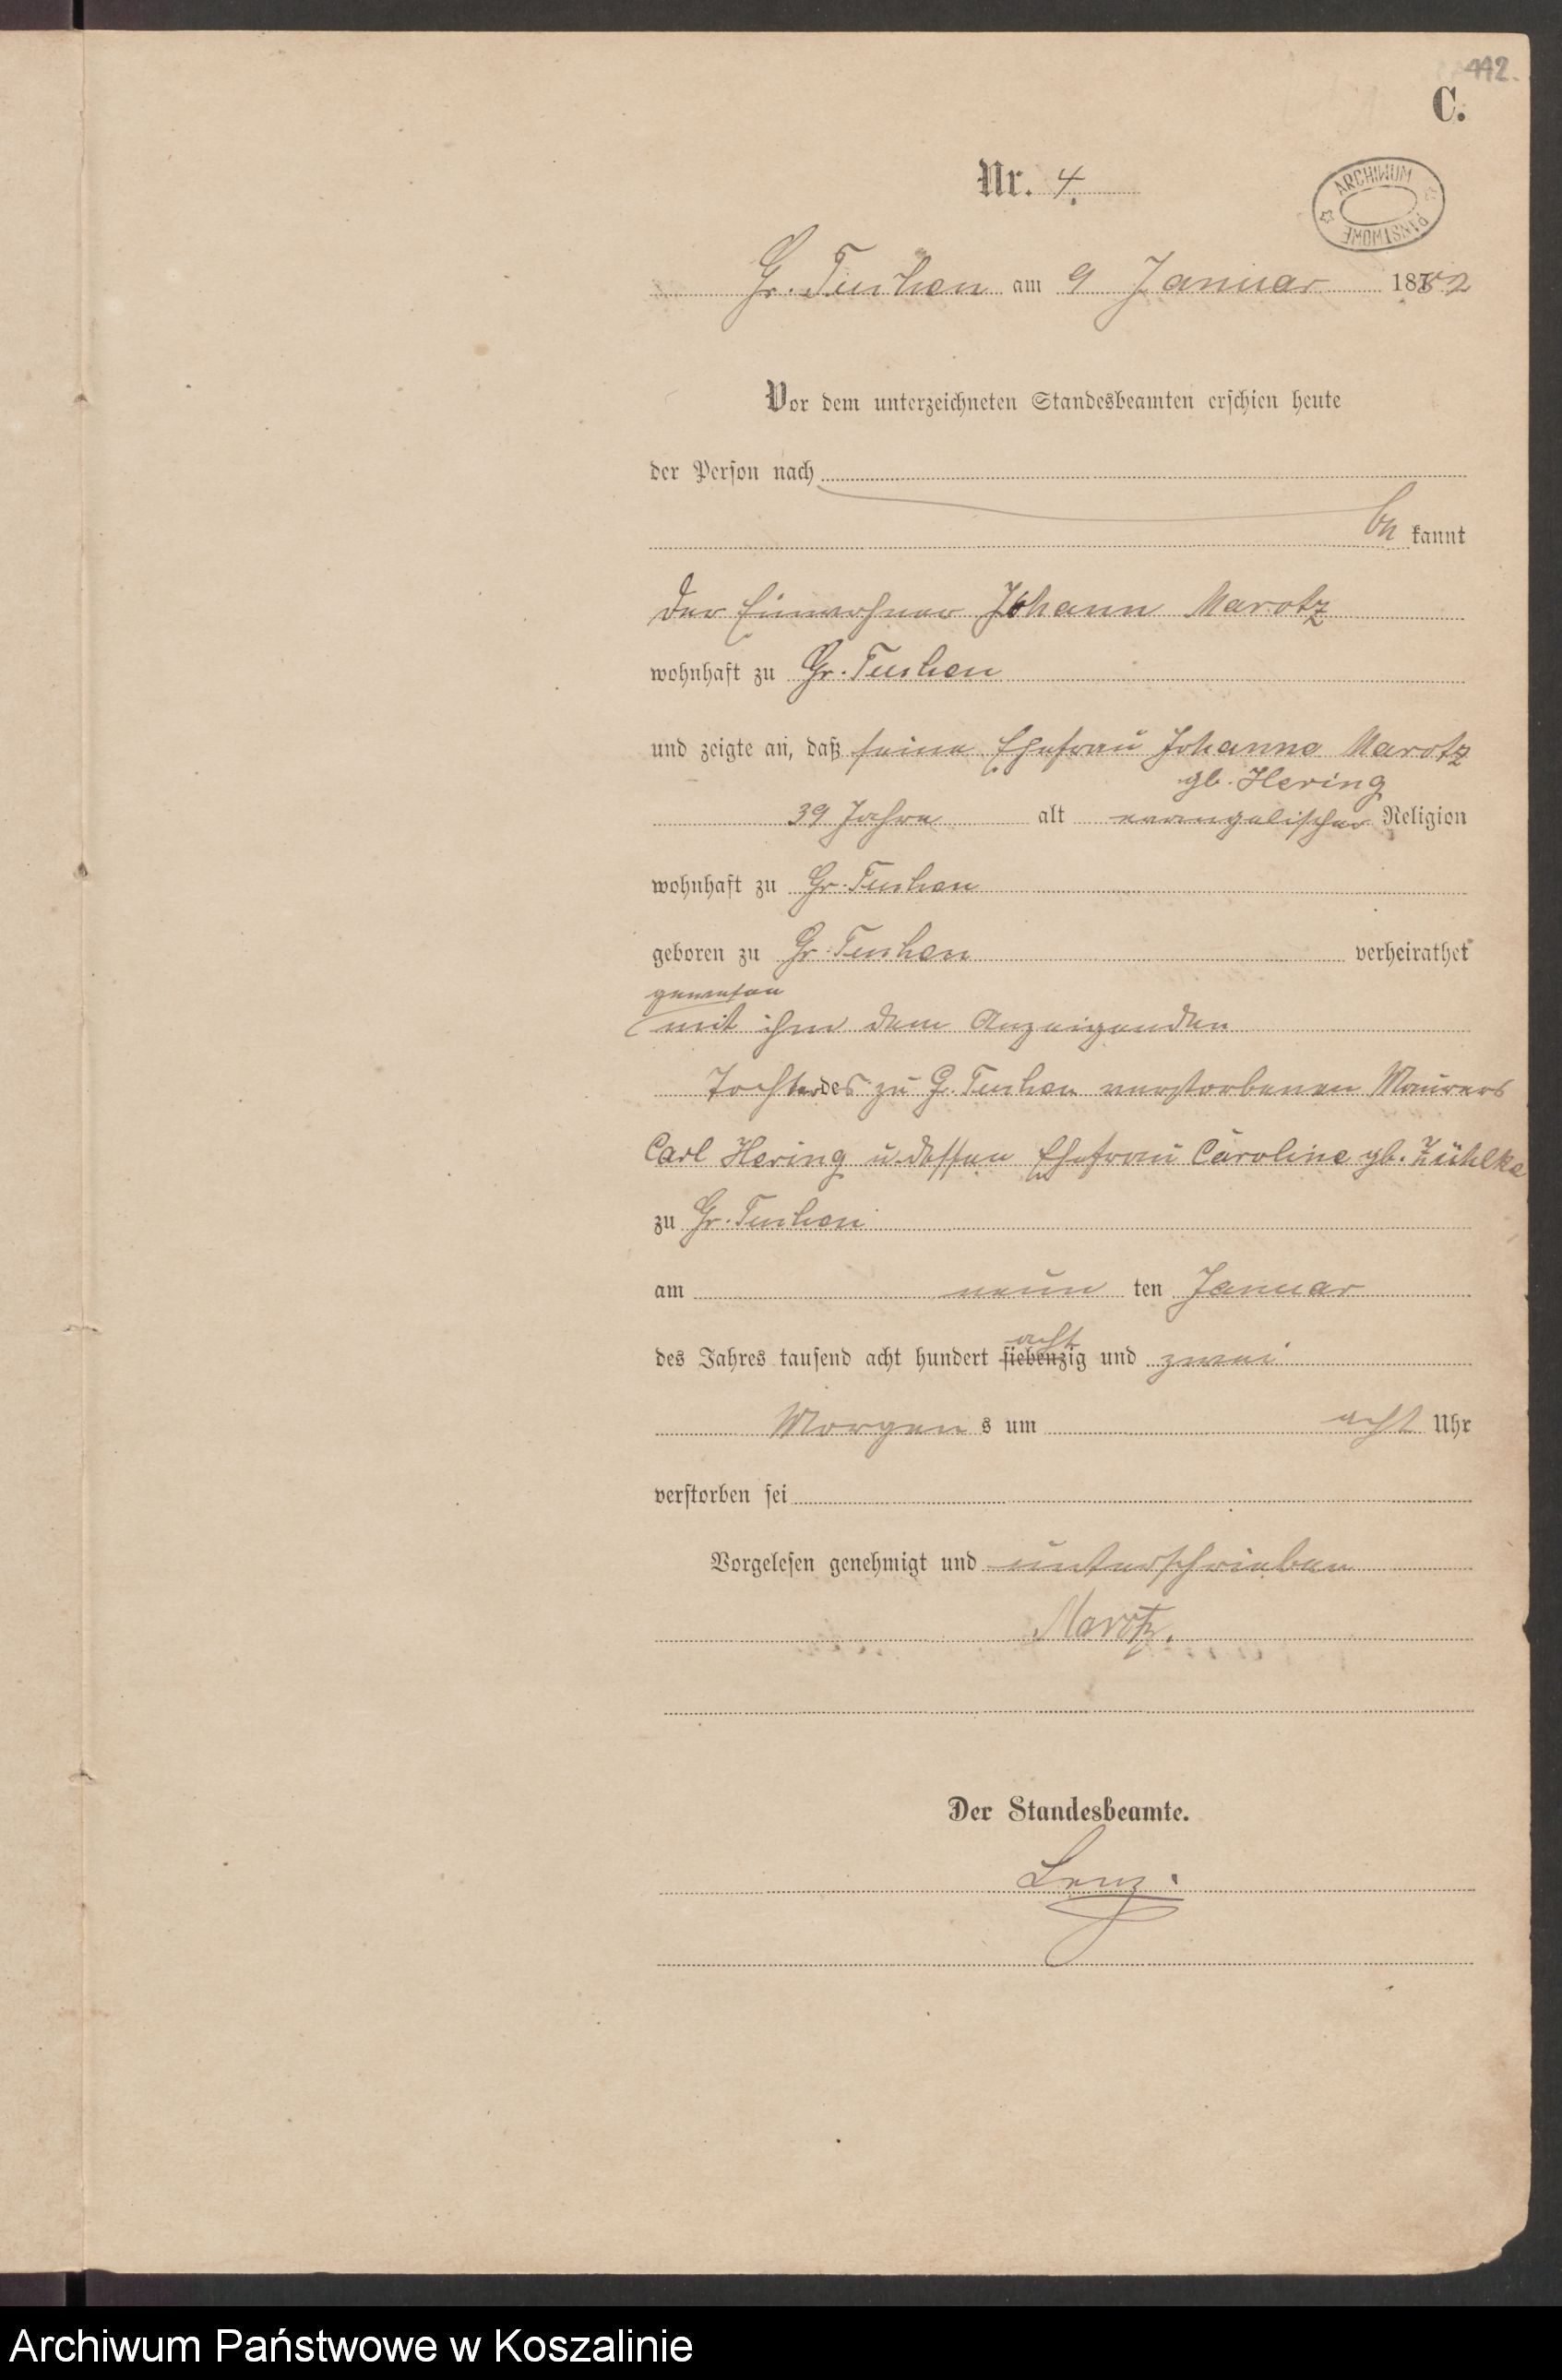 112.
C.
Nr. 4.
ARCHIWUM PAŃSTWOWE
Gr. Tuchen am 9 Januar 1882
Vor dem unterzeichneten Standesbeamten erschien heute
der Person nach
be kannt
der Einwohner Johann Marotz
wohnhaft zu Gr. Tuchen
und zeigte an, daß seine Ehefrau Johanna Marotz
gb. Hering
39 Jahre alt evangelischer Religion
wohnhaft zu Gr. Tuchen
geboren zu Gr. Tuchen verheirathet
gewesen
mit ihm dem Anzeigenden
Tochter des zu G. Tuchen verstorbenen Maurers
Carl Hering u. dessen Ehefrau Caroline gb. Zühlke
zu Gr. Tuchen
am neun ten Januar
acht
des Jahres tausend acht hundert siebenzig und zwei
Morgen s um acht Uhr
verstorben sei
Vorgelesen genehmigt und unterschrieben
Marotz.
Der Standesbeamte.
Lenz.
Archiwum Państwowe w Koszalinie